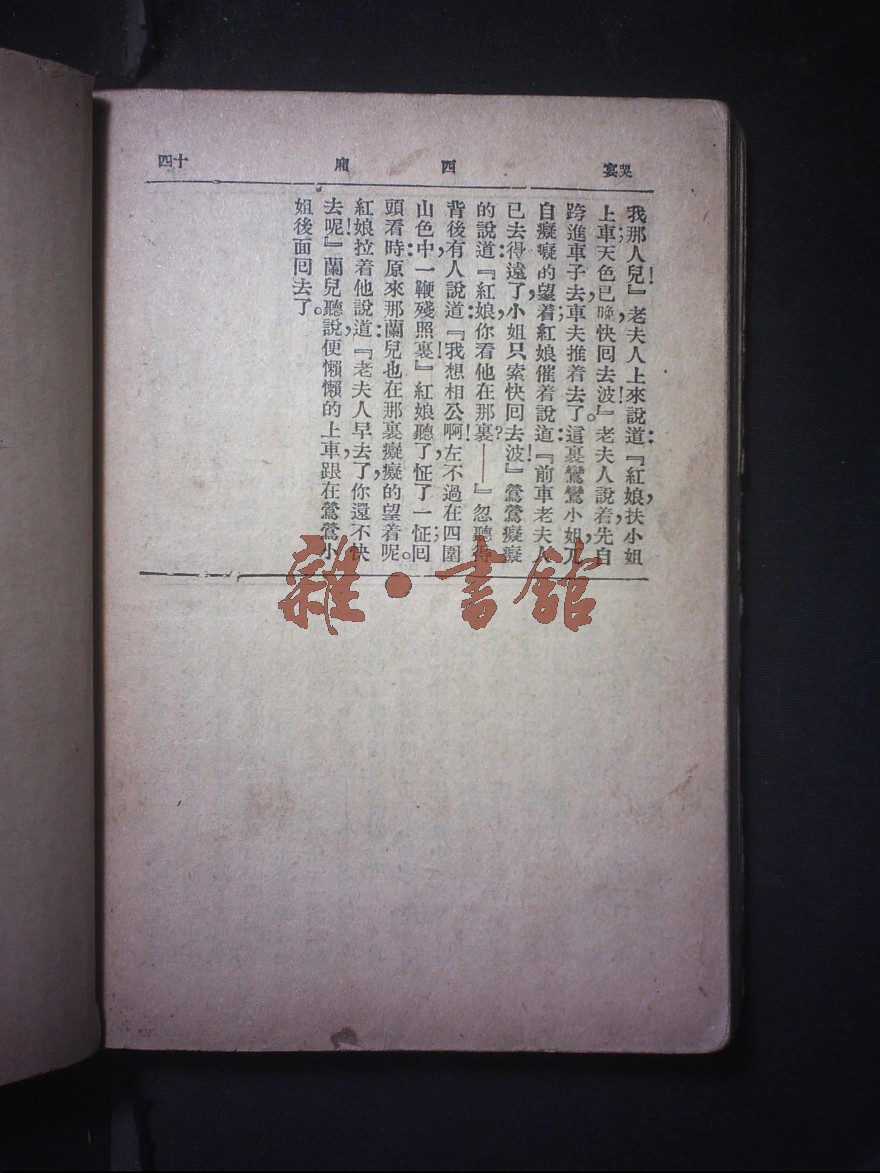 哭宴
西廂
十四
我那人兒！』老夫人上來說道：『紅娘，扶小姐
上車；天色已晚，快回去波！』老夫人說着，先自
跨進車子去；車夫推着去了。這裏鶯鶯小姐，兀
自癡癡的望着，紅娘催着說道：『前車老夫人
已去得遠了，小姐只索快回去波！』鶯鶯癡癡
的說道：『紅娘，你看他在那裏？——』忽聽得
背後有人說道：『我想相公啊！左不過在四圍
山色中，一鞭殘照裏！』紅娘聽了，怔了一怔；回
頭看時：原來那蘭兒也在那裏癡癡的望着呢。
紅娘拉着他說道：『老夫人早去了，你還不快
去呢！』蘭兒聽說，便懶懶的上車，跟在鶯鶯小
姐後面回去了。
雜·書館